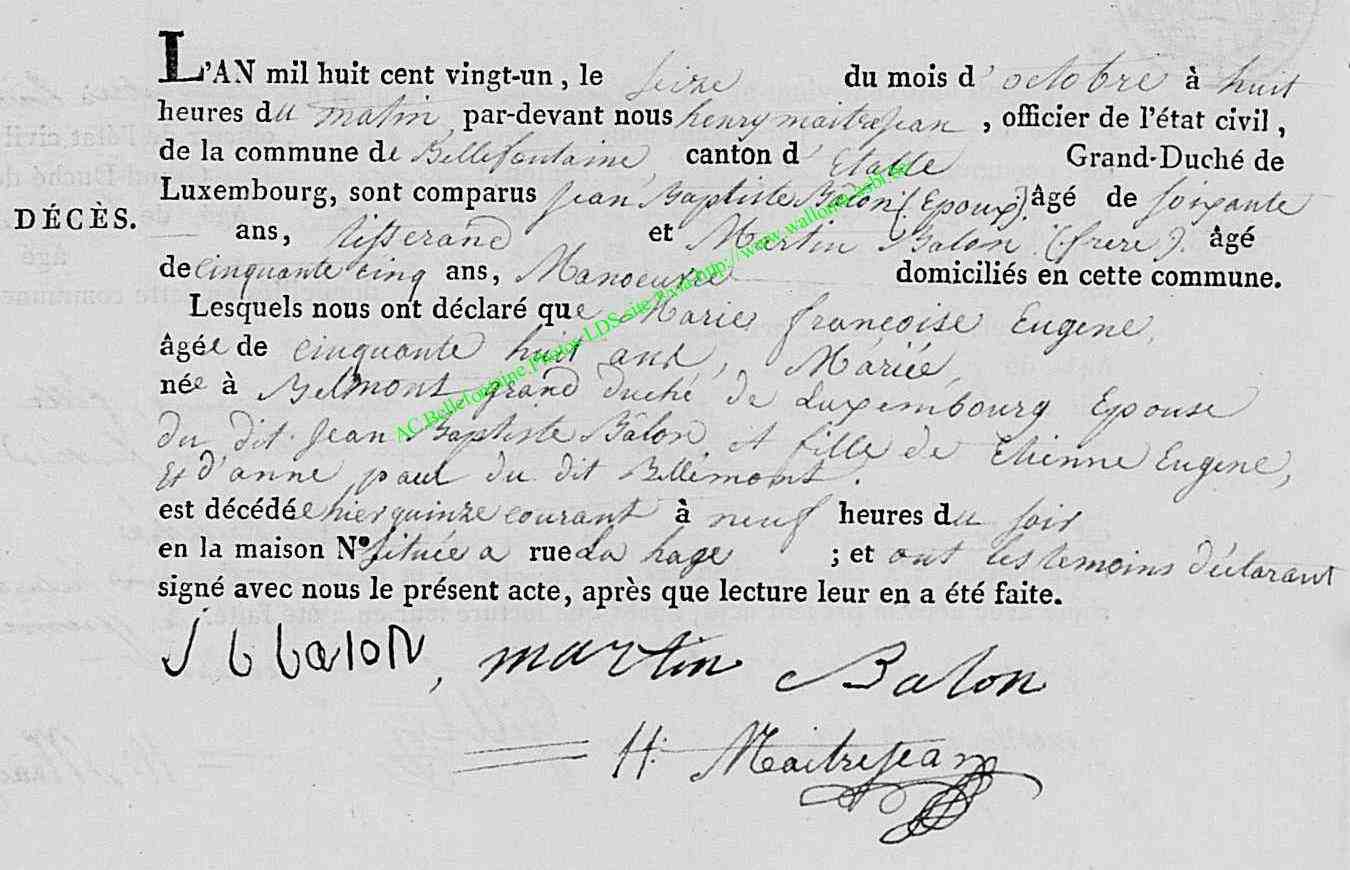 L'AN mil huit cent vingt-un, le seize du mois d' octobre à huit
heures du matin par-devant nous henry maitrejean, officier de l'état civil,
de la commune de Bellefontaine, canton d' Etalle Grand-Duché de
Luxembourg, sont comparus Jean Baptiste Bâlon (Epoux) âgé de soixante
DÉCÈS.
ans, tisserand et Martin Balon (frere). âgé
de cinquante cinq ans, Manoeuvre domiciliés en cette commune.
Lesquels nous ont déclaré que Marie françoise Eugene,
âgée de cinquante huit ans, Mariée,
née à Belmont grand duché de Luxembourg Epouse
du dit Jean Baptiste Bâlon et fille de Etienne Eugene,
Et d'anne paul du dit Bellimont.
est décédée hier quinze courant à neuf heures du soir
en la maison N° située a rue La hage ; et ont les temoins déclarant
signé avec nous le présent acte, après que lecture leur en a été faite.
J b balon, martin Balon
H: Maitrejean
AC Bellefontaine Photos LDS site http://www.wallonia-asbl.be